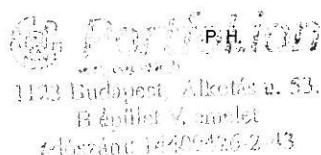 Portfolion
P. H.
1123 Budapest, Alkotás u. 53.
B épület V. emelet
adószám: 14409426-2-43